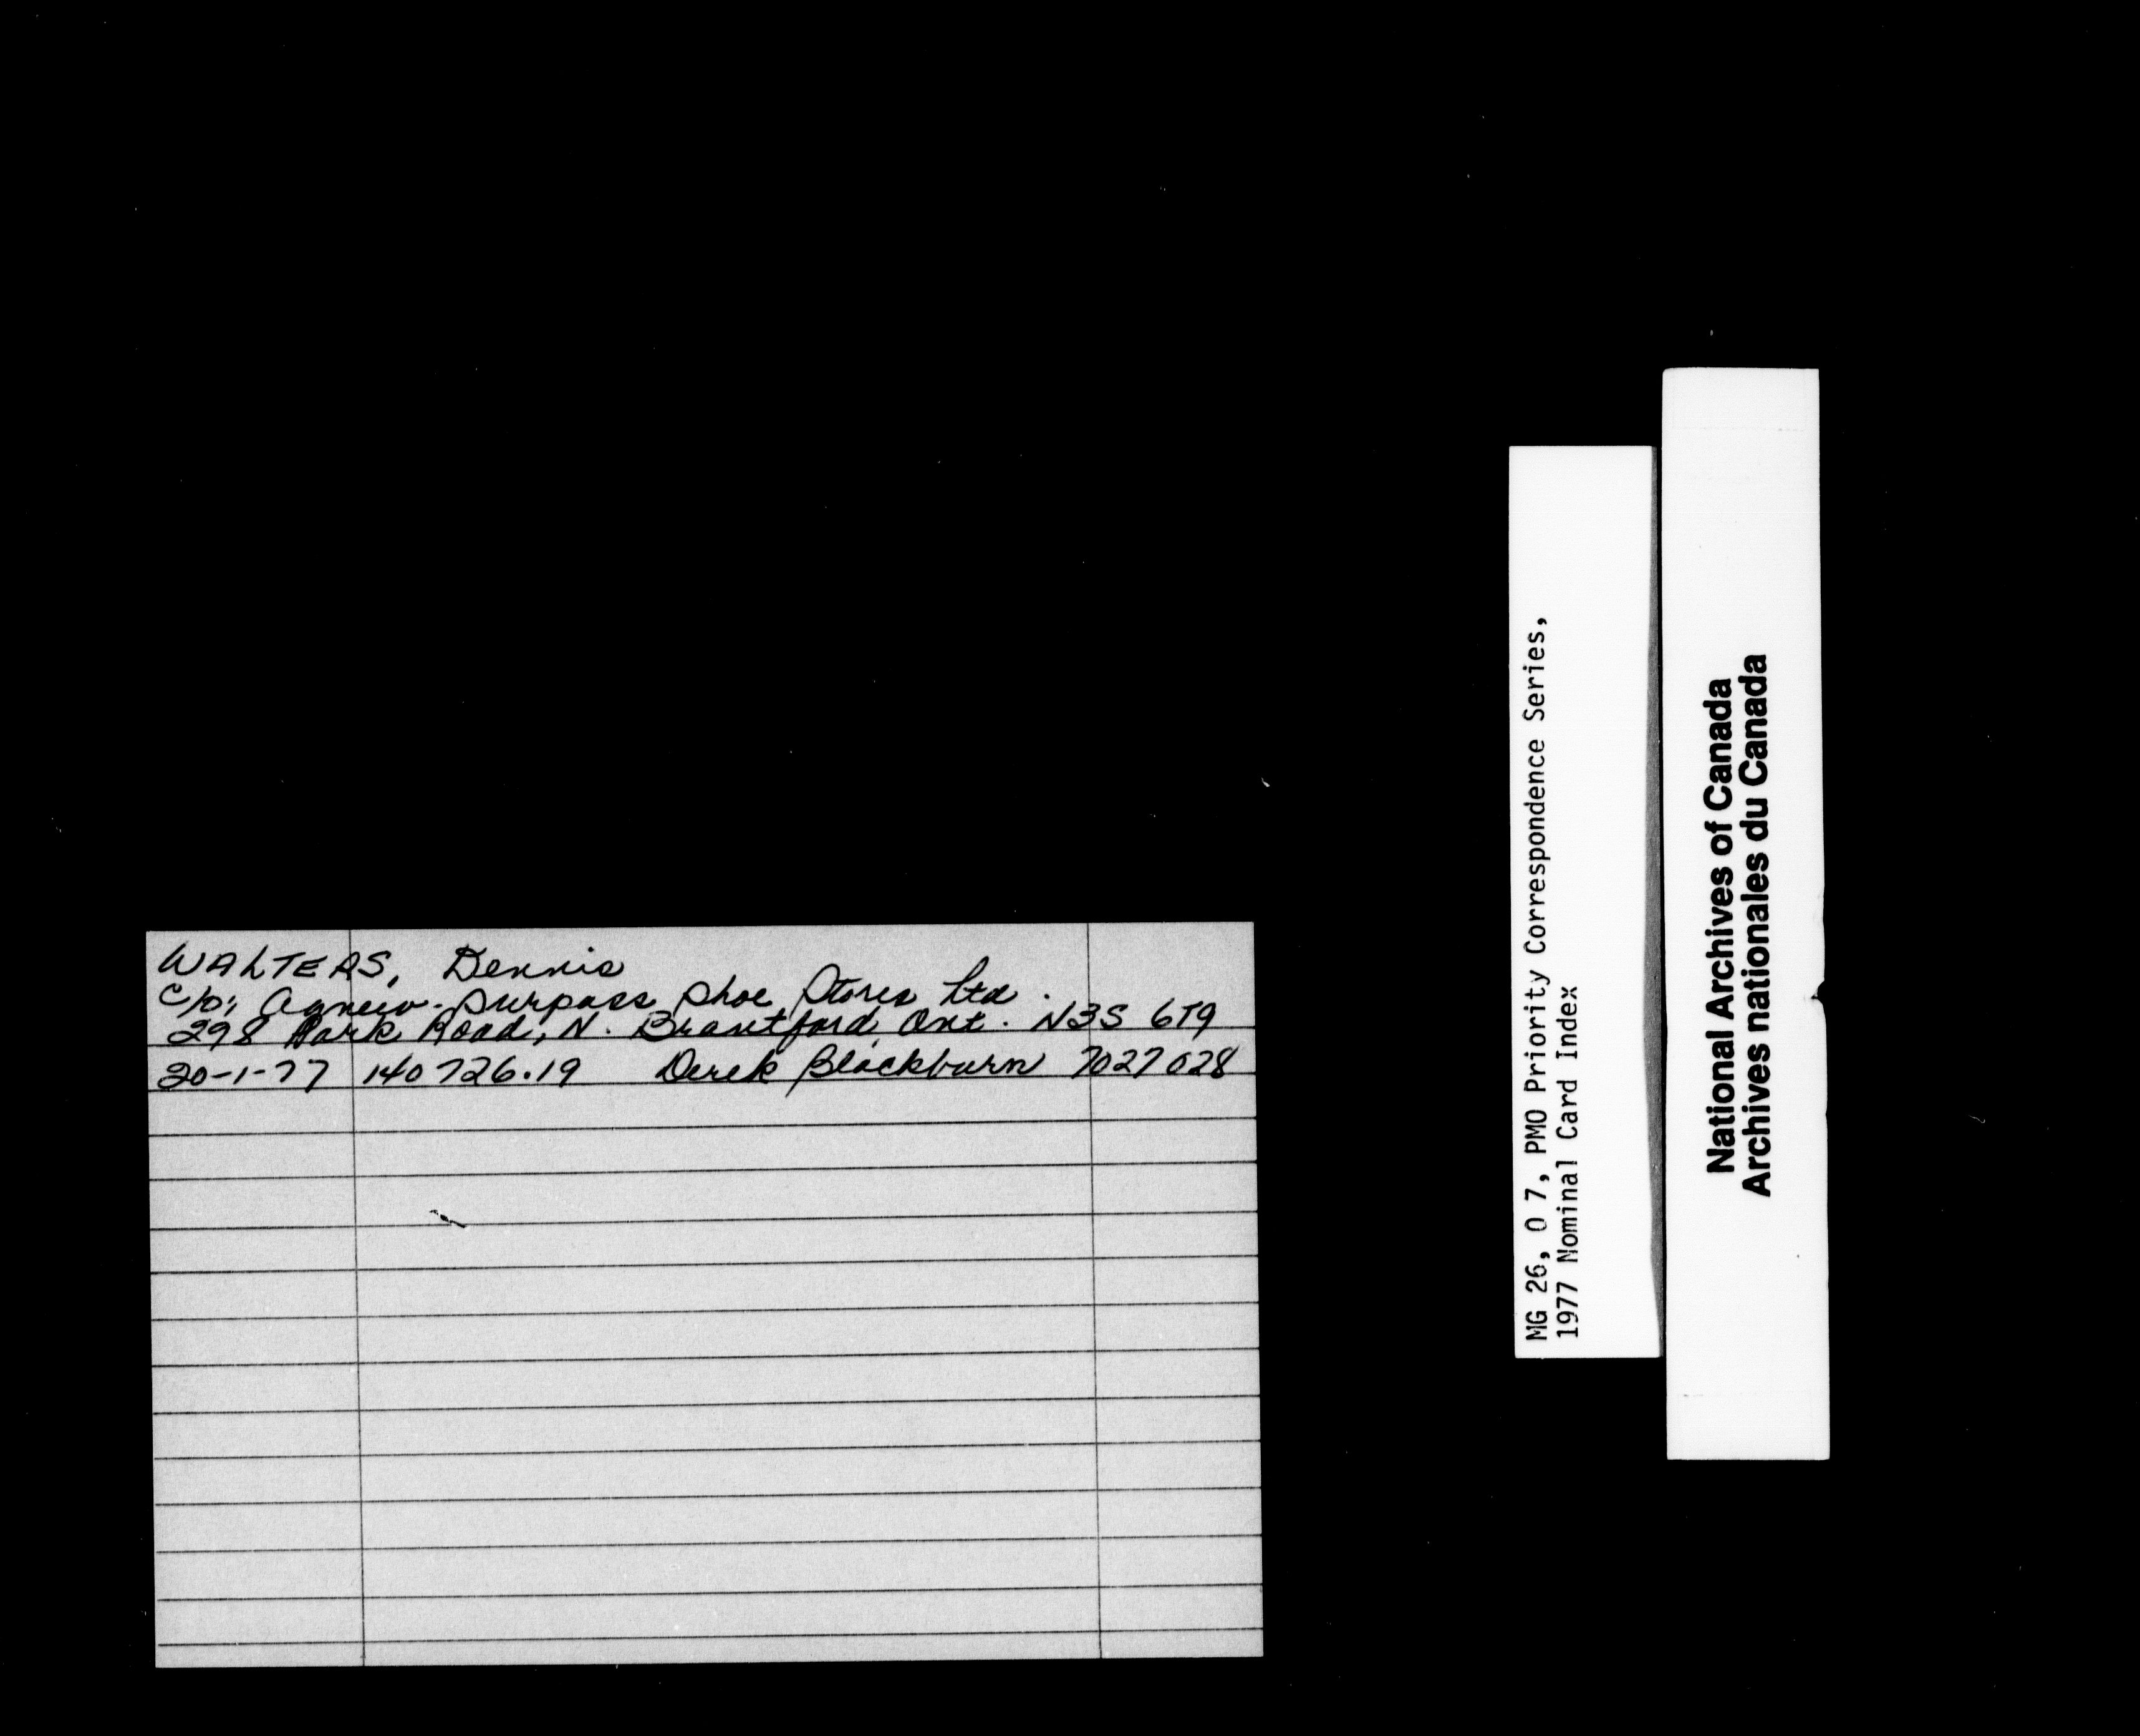 WALTERS, Dennis
c/o; Agnew-Surpass Shoe Stores Ltd.
298 Park Road, N. Brantford, Ont. N3S 6T9
20-1-77 140726.19 Derek Blackburn 7027028
MG 26, O 7, PMO Priority Correspondence Series,
1977 Nominal Card Index
National Archives of Canada
Archives nationales du Canada